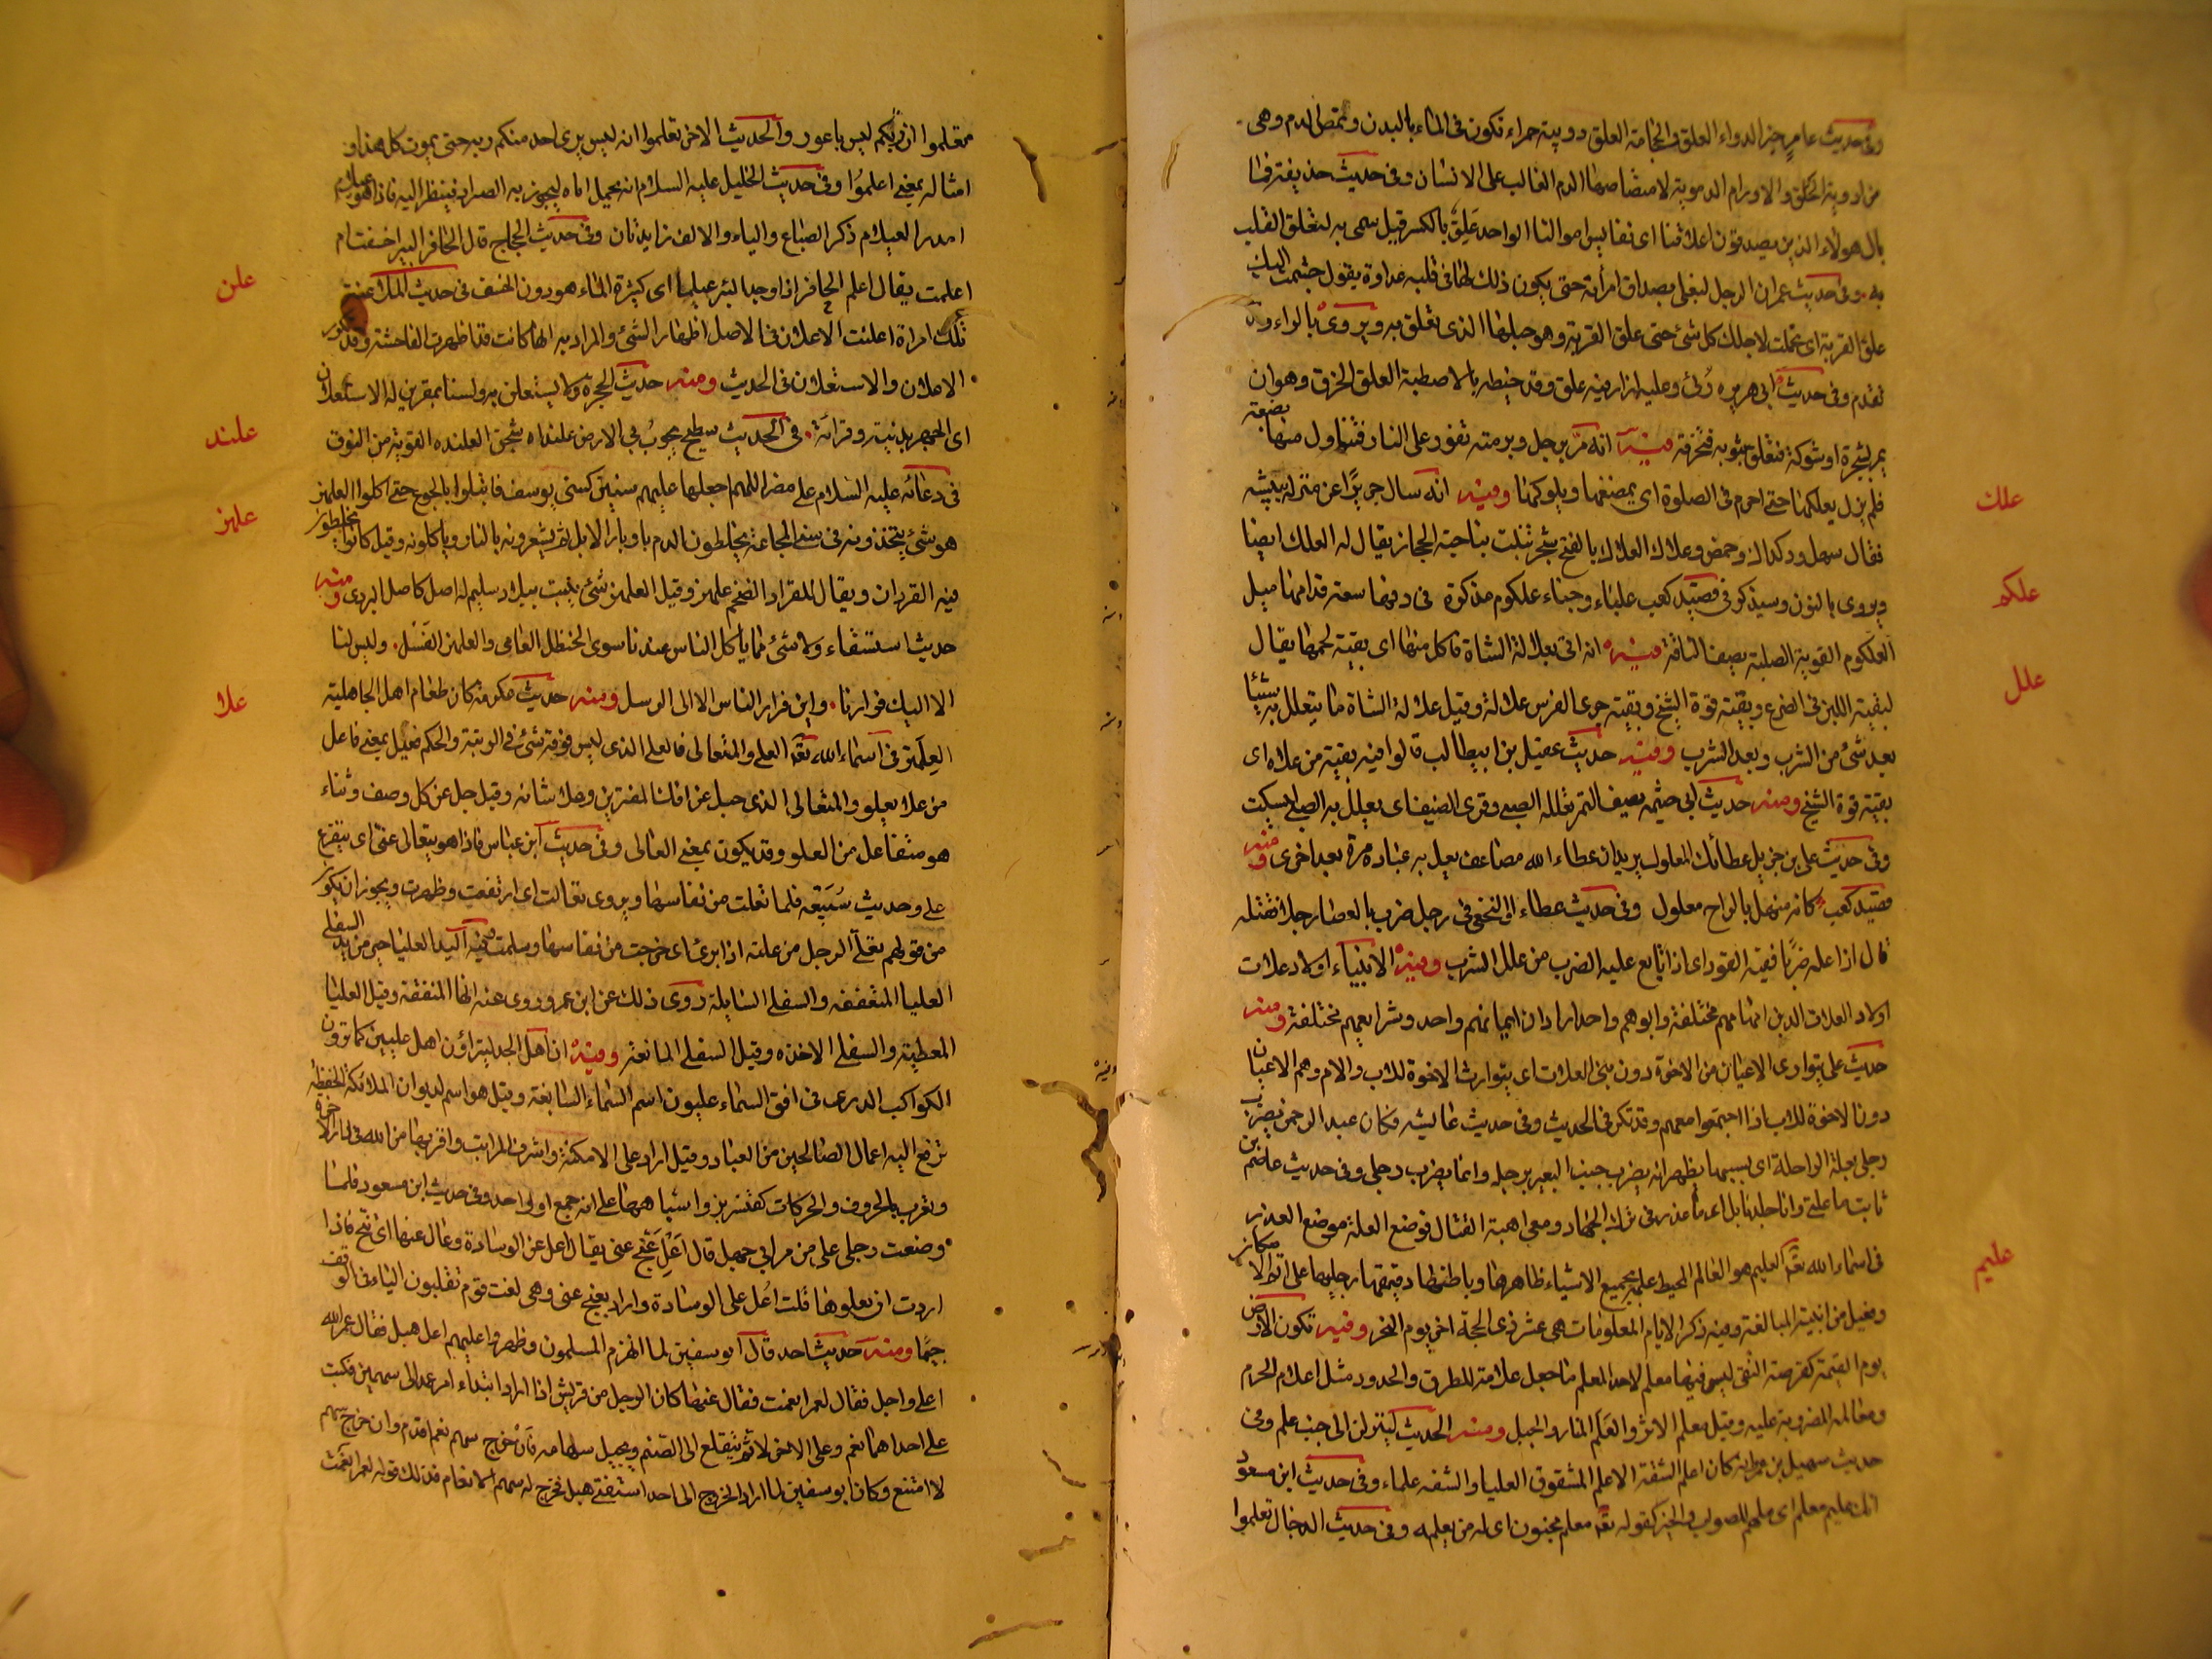 وفى حديث عامر خير الدواء العلق والحجامة العلق دويبة حمراء تكون فى الماء بالبدن وتمتص الدم وهى
من ادوية الحلق والاورام الدموية لامتصاصها الدم الغالب على الانسان وفى حديث حذيفة فما
بال هولاء الذين يسرقون اعلاقنا اى نفايس اموالنا الواحد علق بالكسر قيل سمى به لتعلق القلب
به وفى حديث عمران الرجل ليغلى بصداق امراته حتى يكون ذلك لها فى قلبه عداوة يقول جشمت اليك
علق القربة اى تحملت لاجلك كل شئ حتى علق القربة وهو حبلها الذى تعلق به ويروى بالراء وقد
تقدم وفى حديث ابى هريره رئى وعليه ازار فيه علق وقد خيطه بالاصطبة العلق الخرق وهو ان
يمر بشجرة او شوكة فتعلق بثوبه فتخرقه فيه انه مر برجل وبرمته تفور على النار فتناول منها بضعة
علك
فلم يزل يعلكها حتى احرم فى الصلوة اى يمضغها ويلوكها ومنه انه سال جريرا عن منزله ببيشه
فقال سهل ودكداك وحمض وعلاك العلاك بالفتح شجر ينبت بناحية الحجاز يقال له العلك ايضا
علكم
ويروى بالنون وسيذكر فى قصيد كعب غلباء وجناء علكوم مذكرة فى دفها سعة قدامها ميل
علل
العلكوم القوية الصلبة يصف الناقة فيه انه اتى بعلالة الشاة فاكل منها اى بقية لحمها يقال
لبقية اللبن فى الضرع وبقية قوة الشيخ وبقية جرى الفرس علالة وقيل علالة الشاة ما يتعلل به شيئا
بعد شئ من الشرب وبعد الشرب ومنه حديث عقيل بن ابيطالب قالوا فيه بقية من علاله اى
بقية قوة الشيخ ومنه حديث ابى حثمه يصف التمر تعلة الصبى وقرى الضيف اى يعلل به الصبى ليسكت
وفى حديث على من جزيل عطائك المعلول يريد ان عطاء الله مضاعف يعل به عباده مرة بعد اخرى ومنه
قصيد كعب كانه منهل بالراح معلول وفى حديث عطاء او النخعى فى رجل ضرب بالعصا رجلا فقتله
قال اذا عله ضربا ففيه القود اى اذا تابع عليه الضرب من علل الشرب ومنه الانبياء اولاد علات
اولاد العلات الذين امهاتهم مختلفة وابوهم واحد اراد ان ايمانهم واحد وشرايعهم مختلفة ومنه
حديث على يتوارث الاعيان من الاخوة دون بنى العلات اى يتوارث الاخوة للاب والام وهم الاعيان
دون الاخوة للاب اذا اجتمعوا معهم وقد تكرر فى الحديث وفى حديث عايشه فكان عبد الرحمن يضرب
رجلى بعلة الراحلة اى بسببها يظهر انه يضرب جنب البعير برجله وانما يضرب رجلى وفى حديث عاصم بن
ثابت ما علتى وانا جلد نابل اى ما عذرى فى ترك الجهاد ومعى اهبة القتال فوضع العلة موضع العذر
عليم
فى اسماء الله تعه العليم هو العالم المحيط علمه بجميع الاشياء ظاهرها وباطنها دقيقها وجليلها على اتم الامكان
وفعيل من ابنية المبالغة وفيه ذكر الايام المعلومات هى عشر ذى الحجة اخرى يوم النحر وفيه تكون الارض
يوم القيمة كقرصة النقى ليس فيها معلم لاحد المعلم ما جعل علامة للطرق والحدود مثل اعلام الحرم
ومعالمه المضروبة عليه وقيل معلم الاثر والعلم المنار والجبل ومنه الحديث لينزلن الى جنب علم وفى
حديث سهيل بن عمرو انه كان اعلم الشفة الاعلم المشقوق العليا والشفه علماء وفى حديث ابن مسعود
انك عليم معلم اى ملهم للصواب والخير كقوله تعه معلم مجنون اى له من يعلمه وفى حديث الدجال تعلموا
تعلموا ان ربكم ليس باعور والحديث الاخر تعلموا انه ليس يرى احد منكم ربه حتى يموت كل هذا و
امثاله بمعنى اعلموا وفى حديث الخليل عليه السلام انه يحمل اباه ليجوز به الصراط فينظر اليه فاذا هو عيلام
امدر العيلام ذكر الضباع والياء والالف زايدتان وفى حديث الحجاج قال لحافر البير اخسفت ام
علن
اعلمت يقال اعلم الحافر اذا وجد البئر عيلما اى كثيرة الماء هو دون الخسف فى حديث الملاعنة
تلك امراة اعلنت الاعلان فى الاصل اظهار الشئ والمراد به انها كانت قد اظهرت الفاحشة وقد تكرر
الاعلان والاستعلان فى الحديث ومنه حديث الهجرة ولا يستعلن به ولسنا بمقرين له الاستعلان
علند
اى الجهر بدينه وقرائته فى الحديث سطيح يجوب بى الارض علنداه شجن العلنده القوية من النوق
علهز
فى دعائه عليه السلام على مضر اللهم اجعلها عليهم سنين كسنى يوسف فابتلوا بالجوع حتى اكلوا العلهز
هو شئ يتخذونه فى سنى المجاعة يخلطون الدم باوبار الابل ثم يشوونه بالنار وياكلونه وقيل كانوا يخلطون
فيه القردان ويقال للقراد الضخم علهز وقيل العلهز شئ ينبت ببلاد سليم له اصل كاصل البردى ومنه
حديث استسقاء ولا شئ مما ياكل الناس عندنا سوى الحنظل العامى والعلهز الفسل وليس لنا
علا
الا اليك فرارنا واين فرار الناس الا الى الرسل ومنه حديث عكرمه كان طعام اهل الجاهلية
العلهز فى اسماء الله تعه العلى والمتعالى فالعلى الذى ليس فوقه شئ فى الرتبة والحكم فعيل بمعنى فاعل
من علا يعلو والمتعالى الذى جل عن افك المفترين وعلا شانه وقيل جل عن كل وصف وثناء
هو متفاعل من العلو وقد يكون بمعنى العالى وفى حديث ابن عباس فاذا هو يتعالى عنى اى يترفع
على وحديث سبيعه فلما تعلت من نفاسها ويروى تعالت اى ارتفعت وظهرت ويجوز ان يكون
من قولهم تعلى الرجل من علته اذا برئ اى خرجت من نفاسها وسلمت فيه اليد العليا خير من يد السفلى
العليا المتعففه والسفلى السايلة روى ذلك عن ابن عمر وروى عنه انها المنفقة وقيل العليا
المعطية والسفلى الاخذه وقيل السفلى المانعة وفيه ان اهل الجنة ليتراؤن اهل عليين كما ترون
الكواكب الدرى فى افق السماء عليون اسم السماء السابعة وقيل هو اسم لديوان الملائكة الحفظة
ترفع اليه اعمال الصالحين من العباد وقيل اراد على الامكنة واشرف المراتب واقربها من الله فى الدار الاخرة
وتعرب بالحروف والحركات كقنسرين واشباهها على انه جمع او لى واحد وفى حديث ابن مسعود فلما
وضعت رجلى على مزمر ابى جهل قال اعل عنج عنى يقال اعل عن الوسادة وعال عنها اى تنح فاذا
اردت ان يعلوها قلت اعل على الوسادة واراد بعنج عنى وهى لغت قوم تقلبون الياء فى الوقف
جيما ومنه حديث احد قال ابو سفين لما انهزم المسلمون وظهروا عليهم اعل هبل فقال عمر الله
اعلى واجل فقال لعمر انعمت فعال عنها كان الرجل من قريش اذا اراد ابتداء امر عمد الى سهمين فكتب
على احدهما نعم وعلى الاخر لا ثم يتقدم الى الصنم ويجيل سهامه فان خرج سهم نعم اقدم وان خرج سهم
لا امتنع وكان ابو سفين لما اراد الخروج الى احد استفتى هبل فخرج له سهم الانعام فذلك قوله لعمر انعمت